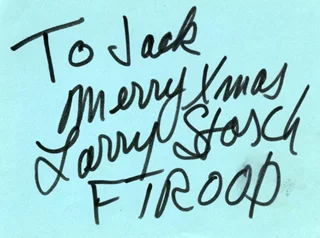 To Jack
Merry Xmas
Larry Storch
F TROOP